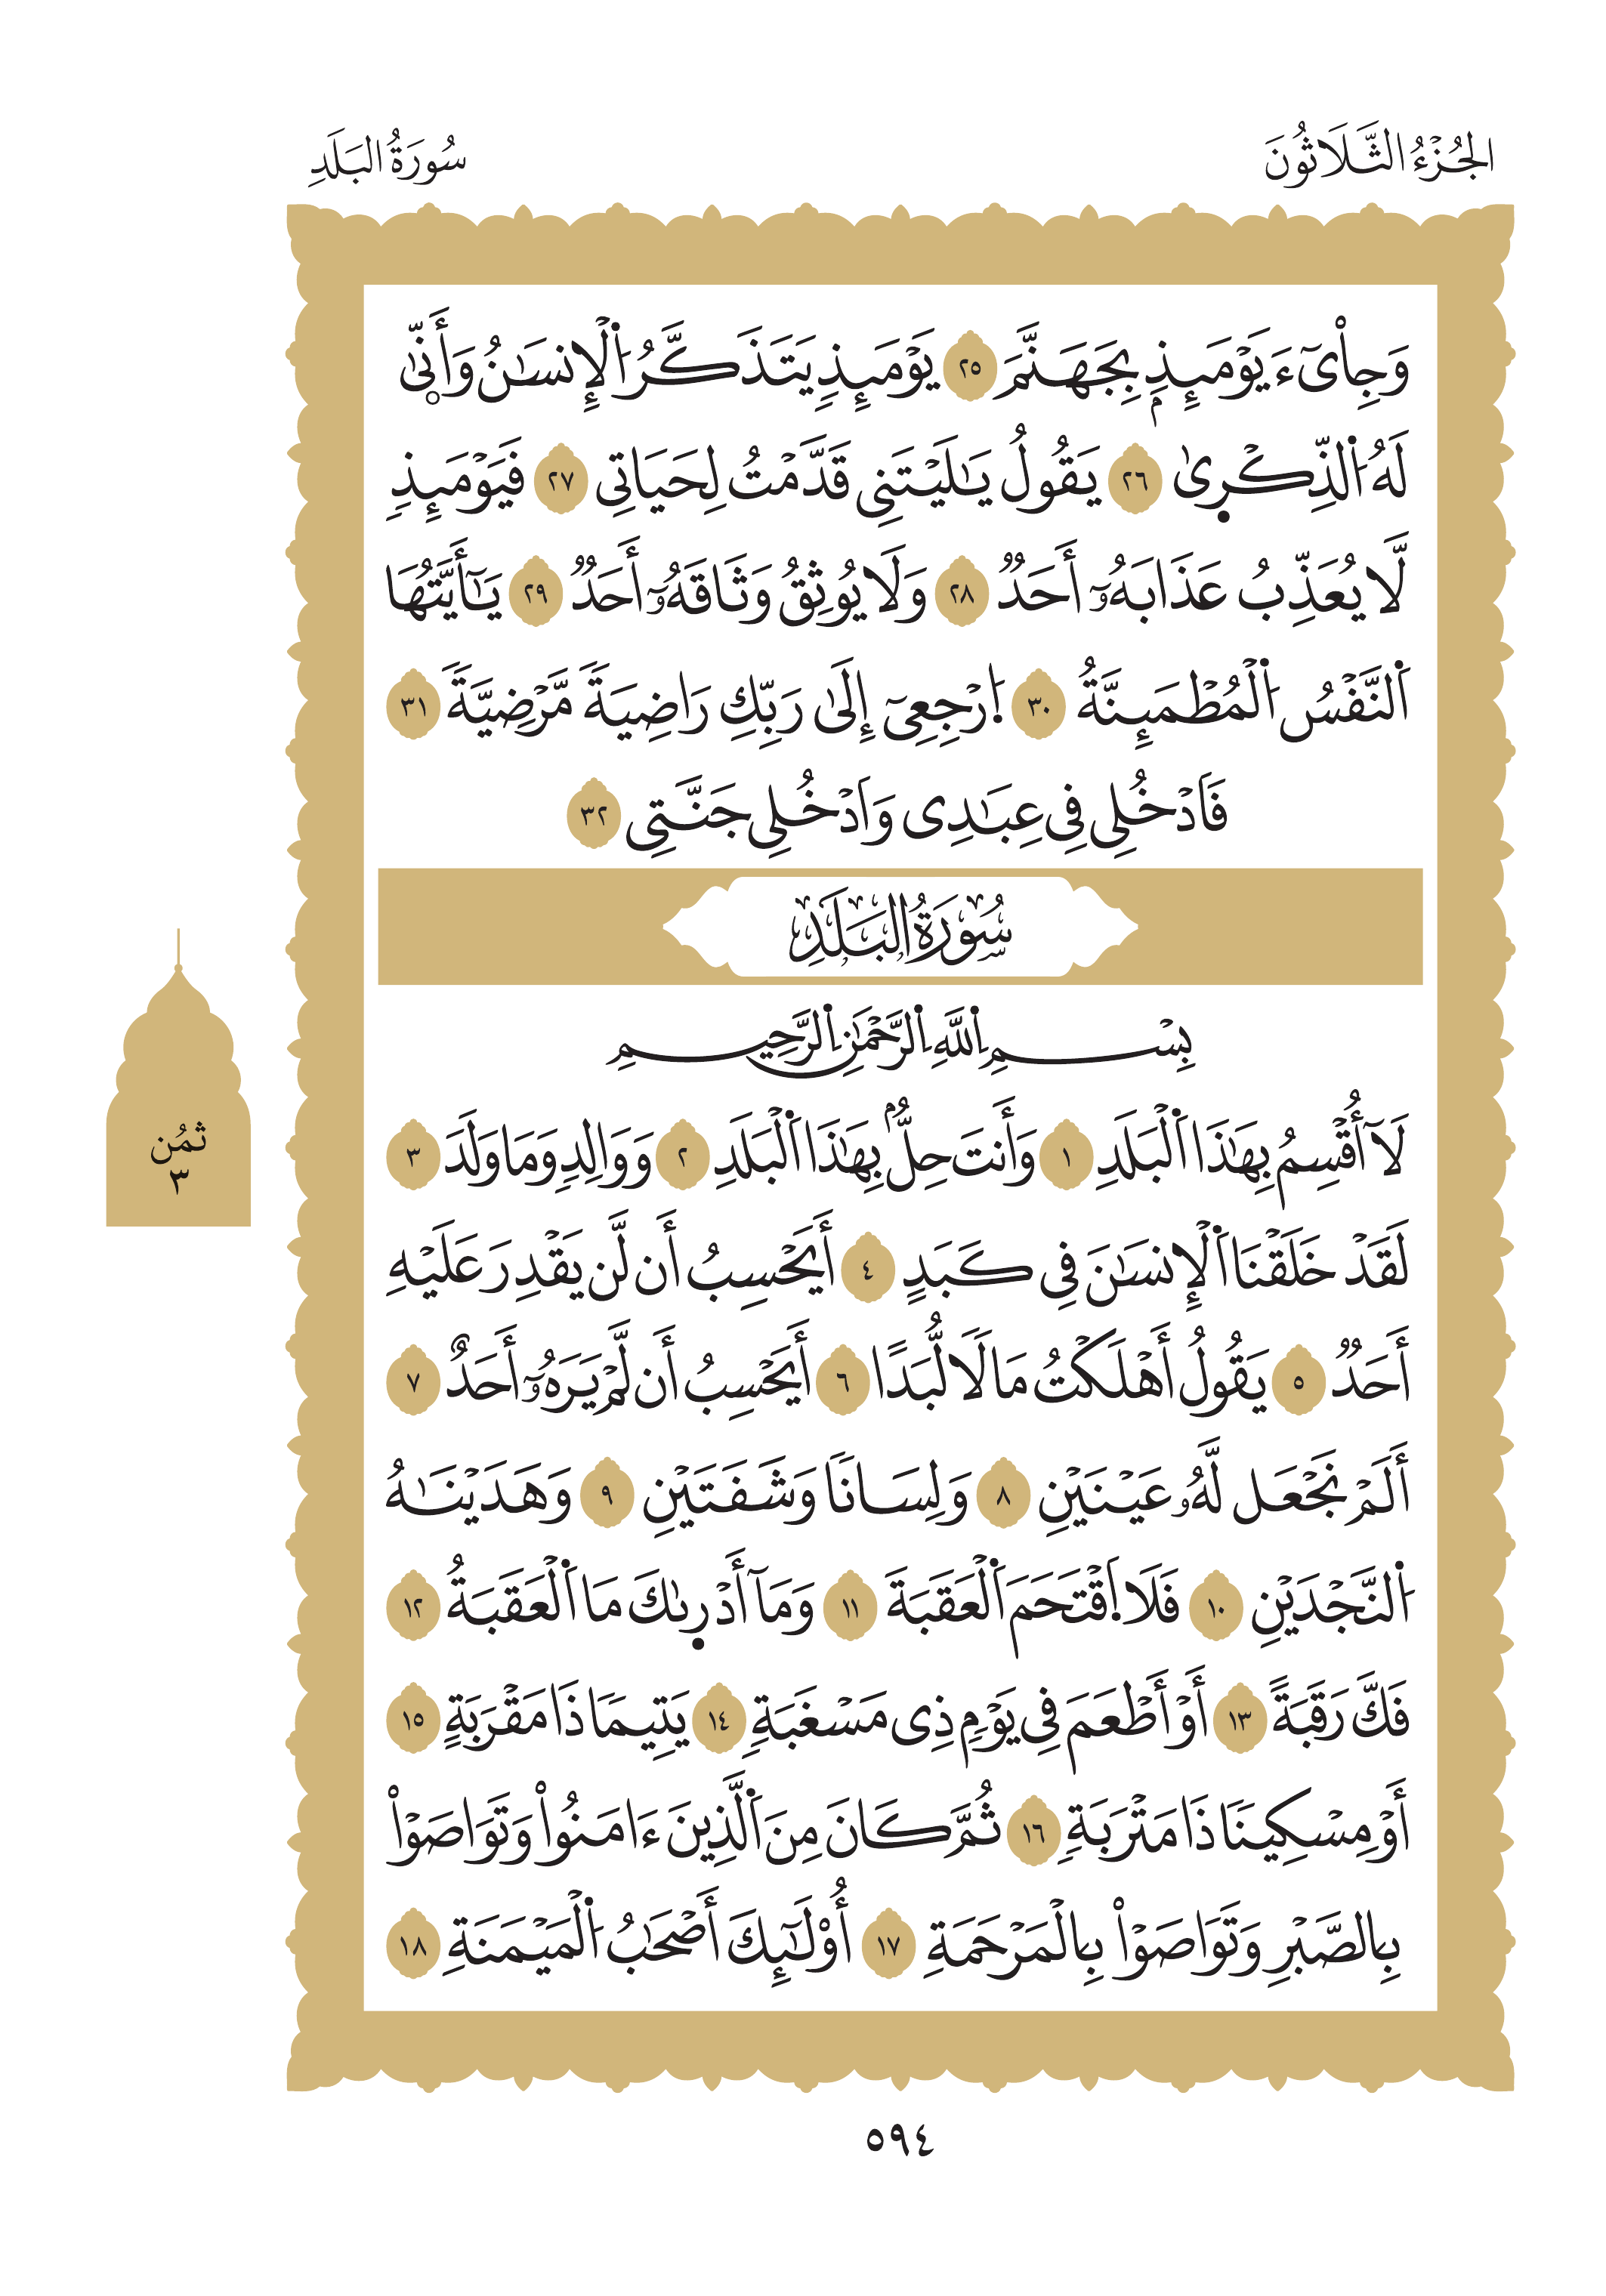 الجُزْءُ الثَّلَاثُونَ
سُورَةُ البَلَدِ
وَجِاْىٓءَ يَوْمَئِذِۭ بِجَهَنَّمَ ٢٥ يَوْمَئِذٖ يَتَذَكَّرُ اُ۬لْإِنسَٰنُ وَأَنّ۪ىٰ
لَهُ اُ۬لذِّكْر۪ىٰ ٢٦ يَقُولُ يَٰلَيْتَنِى قَدَّمْتُ لِحَيَاتِى ٢٧ فَيَوْمَئِذٖ
لَّا يُعَذِّبُ عَذَابَهُۥٓ أَحَدٞ ٢٨ وَلَا يُوثِقُ وَثَاقَهُۥٓ أَحَدٞ ٢٩ يَٰٓأَيَّتُهَا
اَ۬لنَّفْسُ اُ۬لْمُطْمَئِنَّةُ ٣٠ اُ۪رْجِعِىٓ إِلَىٰ رَبِّكِ رَاضِيَةٗ مَّرْضِيَّةٗ ٣١
فَادْخُلِى فِى عِبَٰدِى وَادْخُلِى جَنَّتِى ٣٢
سُورَةُ البَلَدِ
بِسْمِ اِ۬للَّهِ اِ۬لرَّحْمَٰنِ اِ۬لرَّحِيمِ
لَآ أُقْسِمُ بِهَٰذَا اَ۬لْبَلَدِ ١ وَأَنتَ حِلُّۢ بِهَٰذَا اَ۬لْبَلَدِ ٢ وَوَالِدٖ وَمَا وَلَدَ ٣
لَقَدْ خَلَقْنَا اَ۬لْإِنسَٰنَ فِى كَبَدٍ ٤ أَيَحْسِبُ أَن لَّن يَقْدِرَ عَلَيْهِ
أَحَدٞ ٥ يَقُولُ أَهْلَكْتُ مَالٗا لُّبَدًا ٦ أَيَحْسِبُ أَن لَّمْ يَرَهُۥٓ أَحَدٌ ٧
أَلَمْ نَجْعَل لَّهُۥ عَيْنَيْنِ ٨ وَلِسَانٗا وَشَفَتَيْنِ ٩ وَهَدَيْنَٰهُ
اُ۬لنَّجْدَيْنِ ١٠ فَلَا اَ۪قْتَحَمَ اَ۬لْعَقَبَةَ ١١ وَمَآ أَدْر۪ىٰكَ مَا اَ۬لْعَقَبَةُ ١٢
فَكَّ رَقَبَةً ١٣ أَوْ أَطْعَمَ فِى يَوْمٖ ذِى مَسْغَبَةٖ ١٤ يَتِيمٗا ذَا مَقْرَبَةٍ ١٥
أَوْ مِسْكِينٗا ذَا مَتْرَبَةٖ ١٦ ثُمَّ كَانَ مِنَ اَ۬لَّذِينَ ءَامَنُواْ وَتَوَاصَوْاْ
بِالصَّبْرِ وَتَوَاصَوْاْ بِالْمَرْحَمَةِ ١٧ أُوْلَٰٓئِكَ أَصْحَٰبُ اُ۬لْمَيْمَنَةِ ١٨
ثمُن
٣
٥٩٤